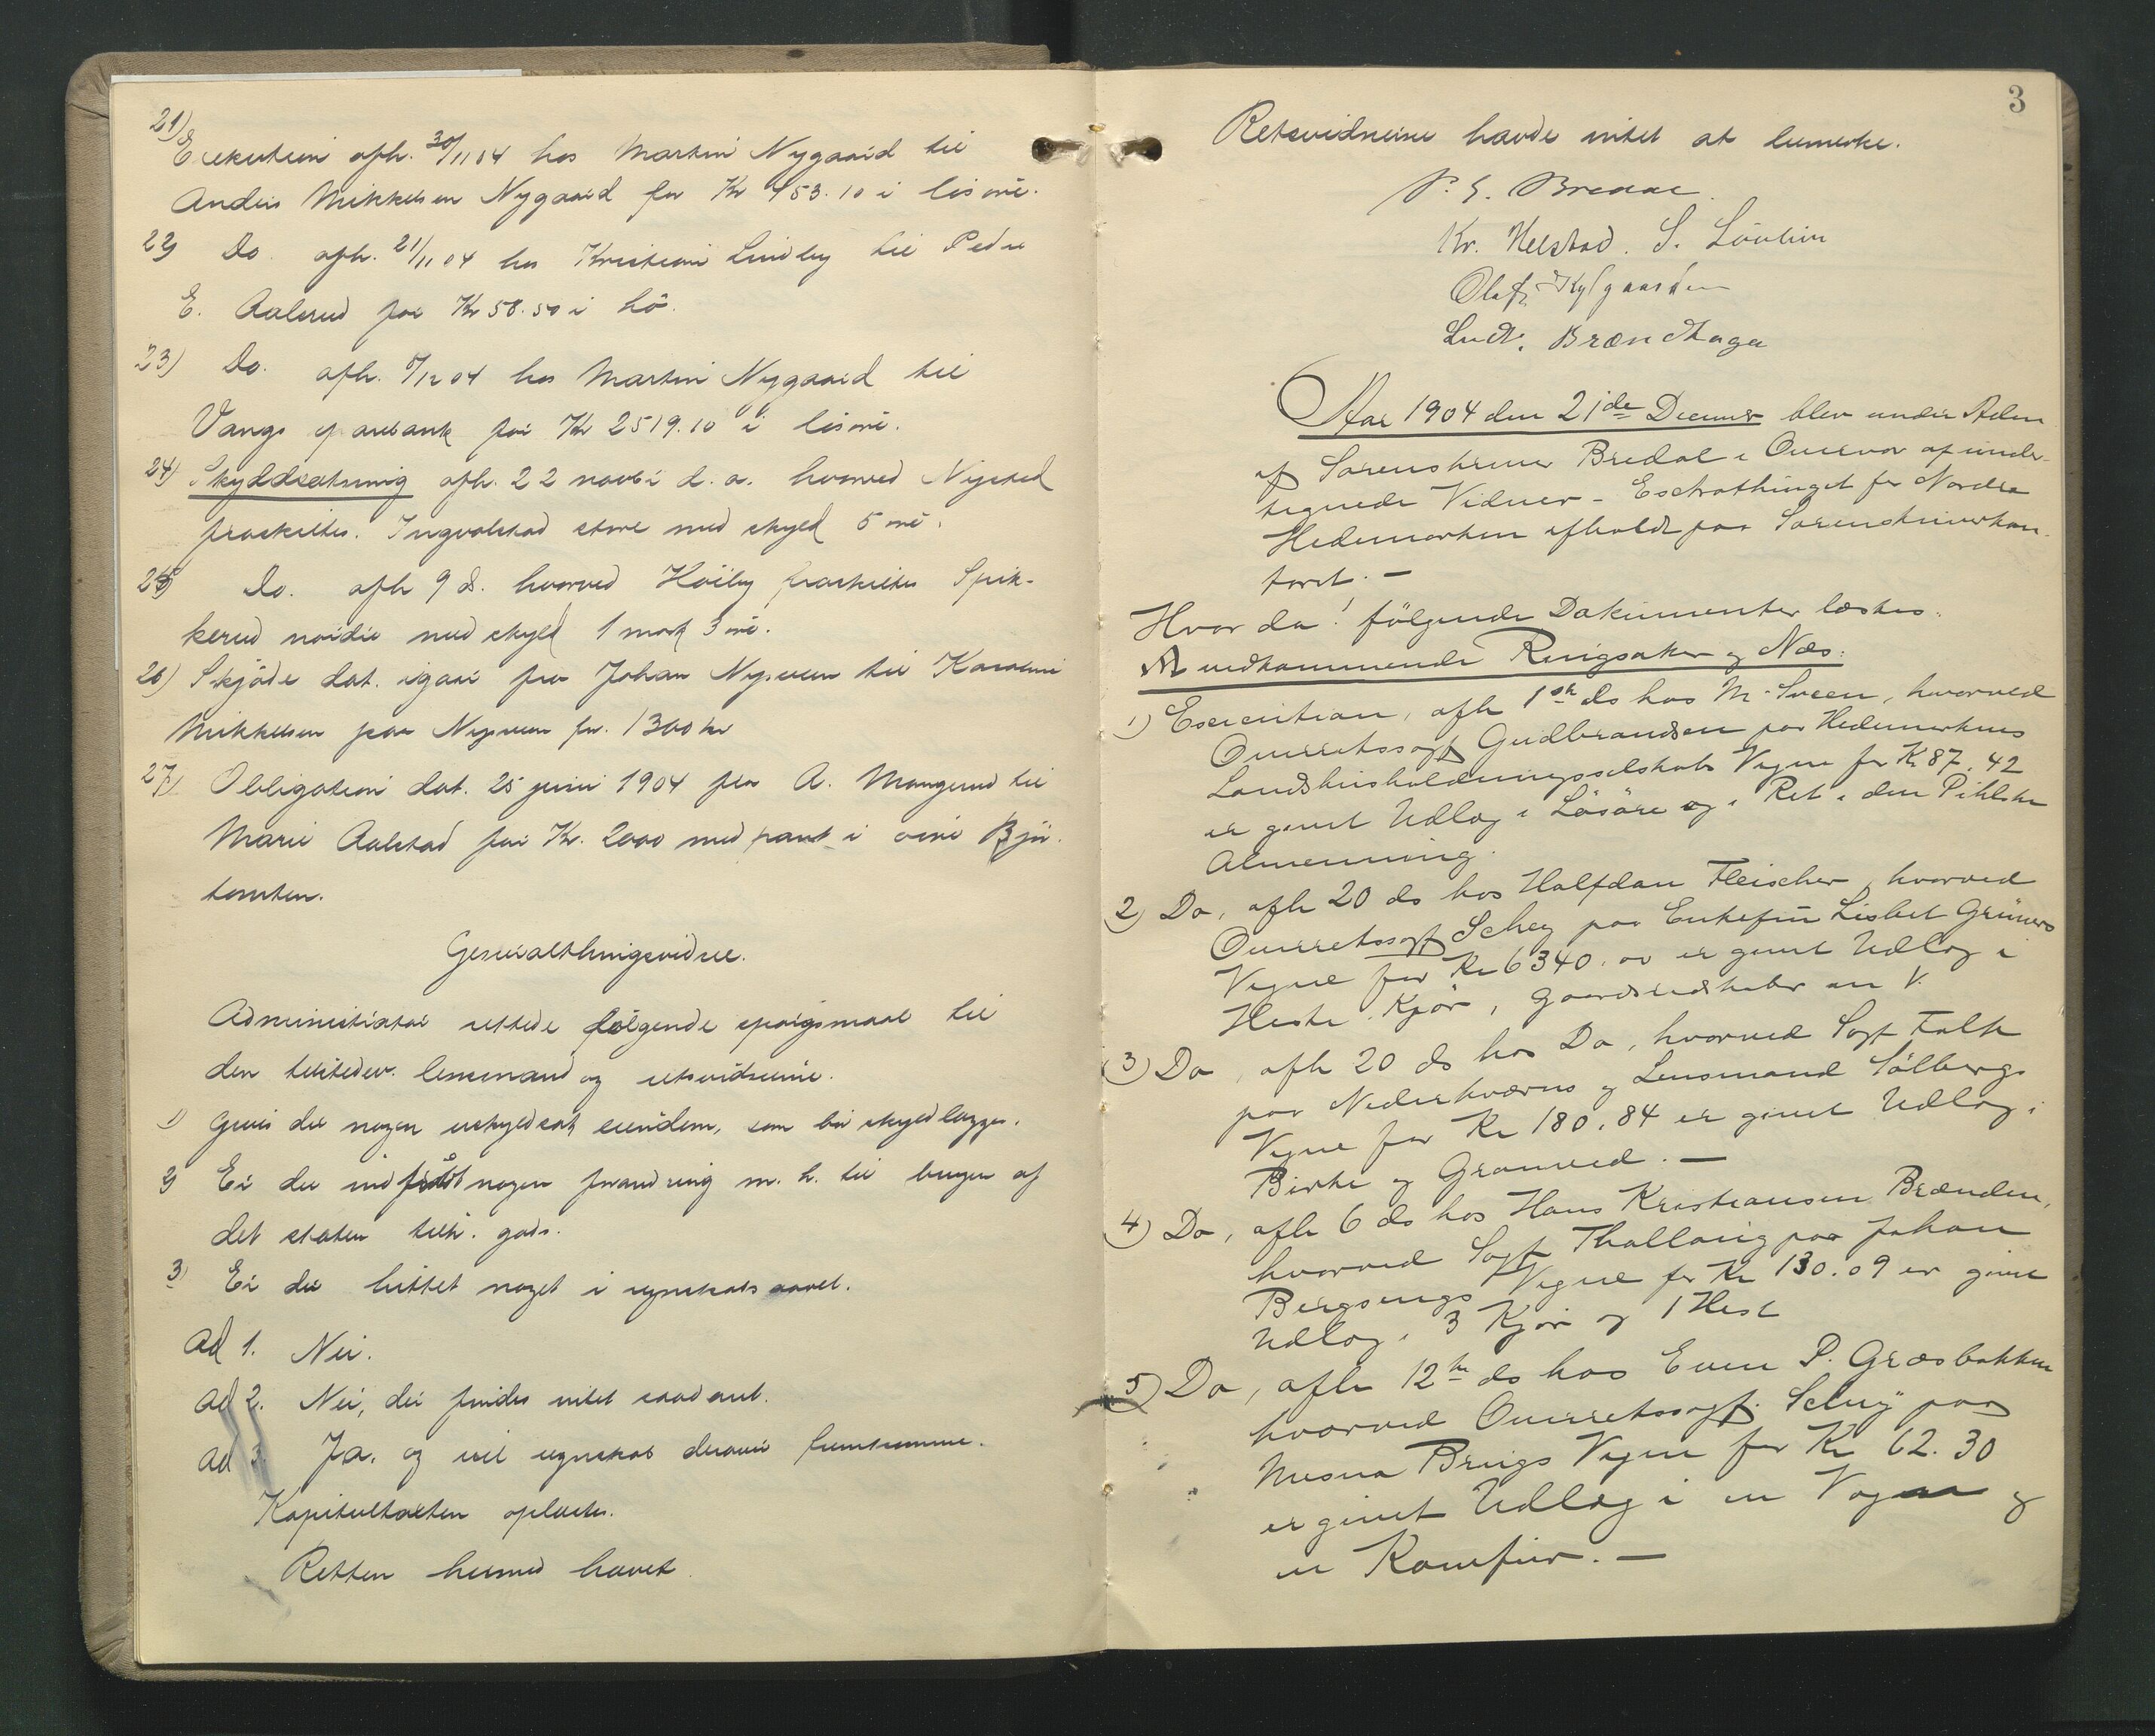 21)
Execution afh. 30/11 04 hos Martin Nygaard til
Anders Mikkelsen Nygaard for Kr 453.10 i løsøre.
22) Do. afh. 21/11 04 hos Kristian Lindby til Peder
E. Aalerud for Kr 58.50 i hø.
23) Do. afh. 7/12 04 hos Martin Nygaard til
Vangs sparebank for Kr 2519.10 i løsøre.
24) Skyldsætning afh. 22 novbr d. a. hvorved Nysted
fraskiltes Ingvalstad store med skyld 5 øre.
25) Do. afh 9 ds. hvorved Höiby fraskiltes Spik-
kerud nordre med skyld 1 mark 3 øre.
26) Skjöde dat. igaar fra Johan Nysveen til Karoline
Mikkelsen paa Nysveen for 1300 kr
27) Obligation dat. 25 juni 1904 fra A. Mangerud til
Marie Aalstad for Kr. 2000 med pant i
tomten.
Generalthingsvidne.
Administrator rettede følgende spörgsmaal til
den tilstedev. lensmand og retsvidnerne.
1) Gives der nogen uskyldsat eiendom, som bör skyldlægges.
2) Er der indtraadt nogen forandring m. h. til brugen af
det staten tilh. gods.
3) Er der hittet noget i regnskabsaaret.
Ad 1. Nei.
Ad 2. Nei, der findes intet saadant.
Ad 3. Ja, og vil regnskab derover fremkomme.
Kapiteltaxten oplæstes.
Retten hermed hævet.
3
Retsvidnerne havde intet at bemerke.
P. E. Bredal
Kr. Helstad. S. Lövlien
Olaf
Ludv. Brændhagen
Aar 1904 den 21de December blev under Ledn
af Sorenskriver Bredal i Overvær af under-
tegnede Vidner - Extrathinget for Nordre
Hedemarken afholdt paa Sorenskriverkon-
toret. —
Hvor da! følgende Dokumenter læstes.
A vedkommende Ringsaker og Næs:
1) Execution, afh 1ste ds hos M. Sveen, hvorved
Overretssagf Gudbrandsen paa Hedemarkens
Landhusholdningsselskabs Vegne for Kr 87.42
er givet Udlæg i Løsøre og i Ret i den Pihlske
Almenning.
2) Do, afh 20 ds hos Halfdan Fleischer, hvorved
Overretssagf Schey paa Enkefru Lisbet Grüners
Vegne for Kr 6340.00 er givet Udlæg i
Heste Kjör, Gaardsredskaber m V.
3) Do, afh 20 ds hos Do, hvorved Sagf Falk
paa Nederkværns og Lensmand Sölbergs
Vegne for Kr 180.84 er givet Udlæg i
Birke og Granved. —
4) Do, afh 6 ds hos Hans Kristiansen Brænden,
hvorved Sagf Thallaug paa Johan
Bergsengs Vegne for Kr 130.09 er givet
Udlæg i 3 Kjör og 1 Hest
5) Do, afh 12te ds hos Even P. Græsbakken
hvorved Overretssagf. Schey paa
Mesna Brugs Vegne for Kr 62.30
er givet Udlæg i en Vogn og
en Komfur. —